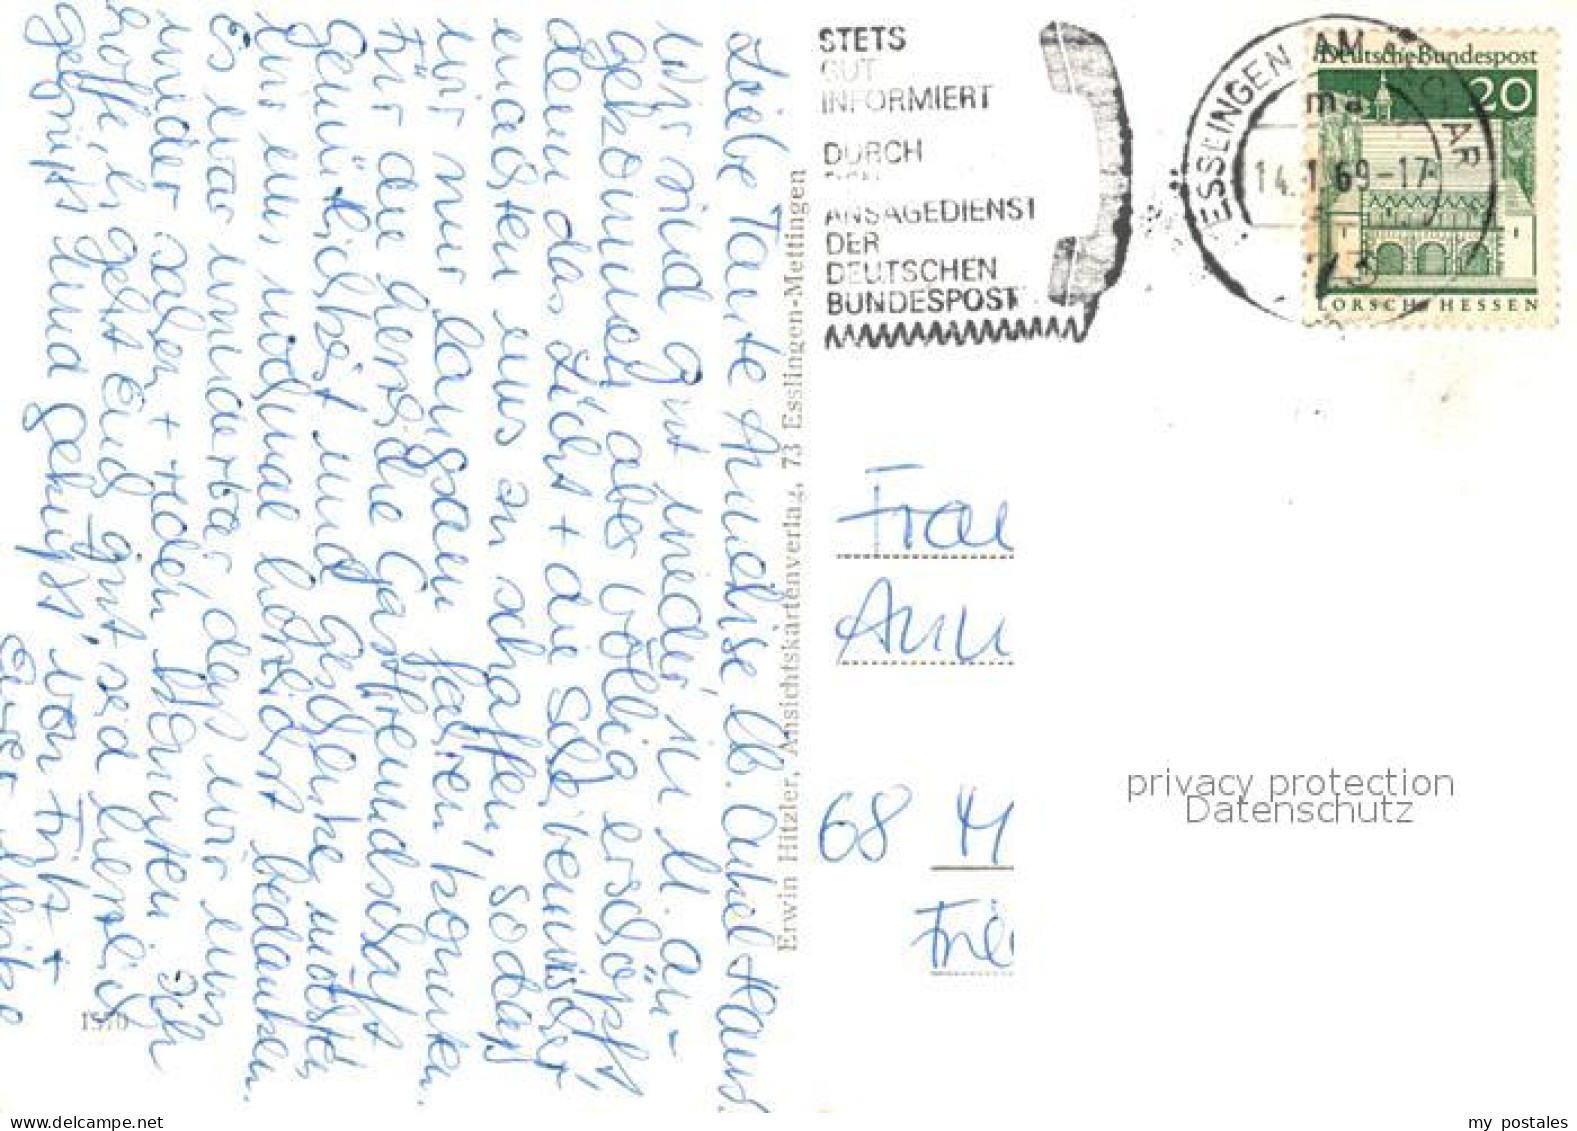 Liebe Tante Anneliese, lb. Onkel Hans.
Wir sind gut wieder in M. an-
gekommen, aber völlig erschöpft,
denn das Licht + die Scheibenwischer
machten uns zu schaffen, sodaß
wir nur langsam fahren konnten.
Für die herzliche Gastfreundschaft
Gemütlichkeit und Geschenke möchten
wir uns nochmal herzlichst bedanken.
Es war wunderbar, daß wir uns
wieder sahen + reden konnten. Ich
hoffe, es geht Euch gut seid herzlich
gegrüßt und geküsst, von Fritz +
Eurer
Erwin Hitzler, Ansichtskartenverlag, 73 Esslingen-Mettingen
1570
STETS
GUT
INFORMIERT
DURCH
DEN
ANSAGEDIENST
DER
DEUTSCHEN
BUNDESPOST
ESSLINGEN AM NECKAR
14.1.69-17
73
Deutsche Bundespost
20
LORSCH HESSEN
Frau
68
privacy protection
Datenschutz
www.delcampe.net
my_postales